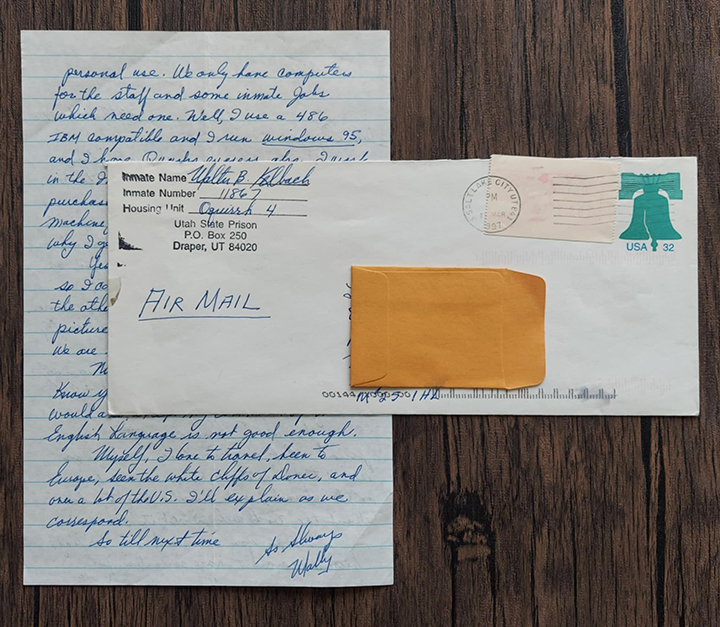 personal use. We only have computers
for the staff and some inmate jobs
which need one. Well, I use a 486
IBM compatible and I run windows 95,
and I have
in the
purchas
machine,
why I g
Yes
so I co
the othe
picture
We are
Know y
would a
English Language is not good enough.
Myself, I love to travel, been to
Europe, seen the white cliffs of Dover, and
over a lot of the U.S. I'll explain as we
correspond.
So till next time
As Always
Wally
Inmate Name Walter B. Kelbach
Inmate Number 11867
Housing Unit Oquirrh 4
Utah State Prison
P.O. Box 250
Draper, UT 84020
AIR MAIL
SALT LAKE CITY UT
PM
1997
USA 32
1HL